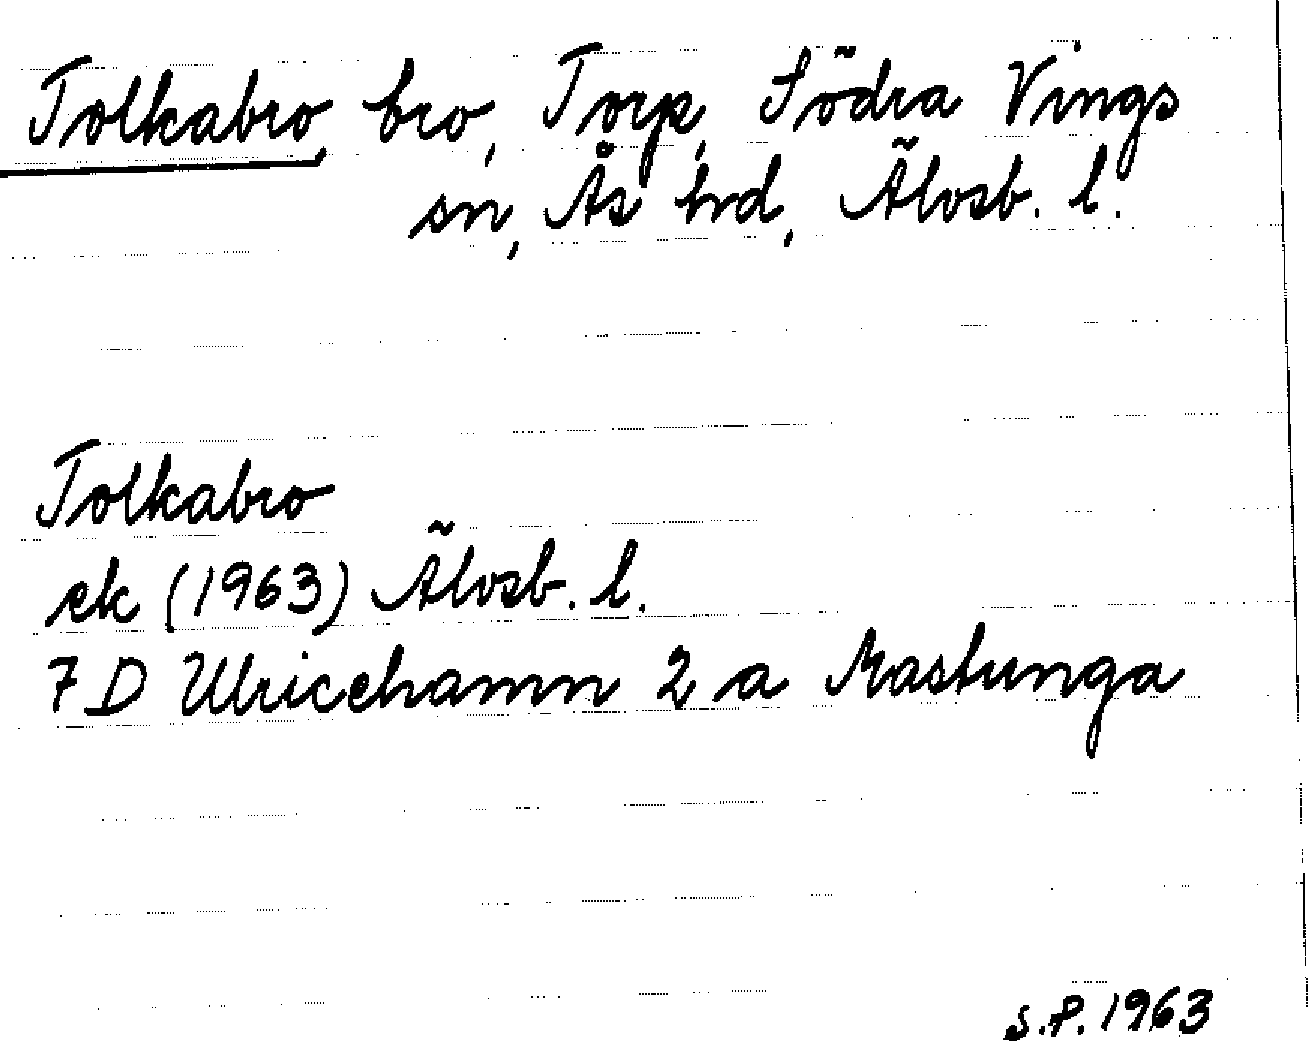 Tolkabro, bro, Torp, Södra Vings
sn, Ås hrd, Älvsb. l.
Tolkabro
ek (1963) Älvsb. l.
7 D Ulricehamn 2 a Rastunga
S.P. 1963